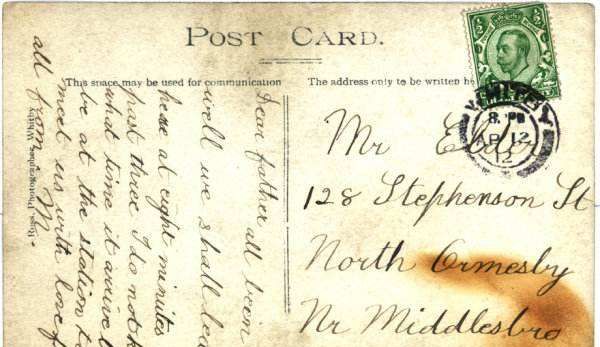 POST CARD.
This space may be used for communication
The address only to be written he
WHITBY
8. PM
AP 12
12
Dear father all bein
well we shall lea
here at eight minutes
past three I do not k
what time it arrive
be at the station t
meet us with love f
all from M
Ross, Photographer, Whitby.
Mr
128 Stephenson St
North Ormesby
Nr Middlesbro